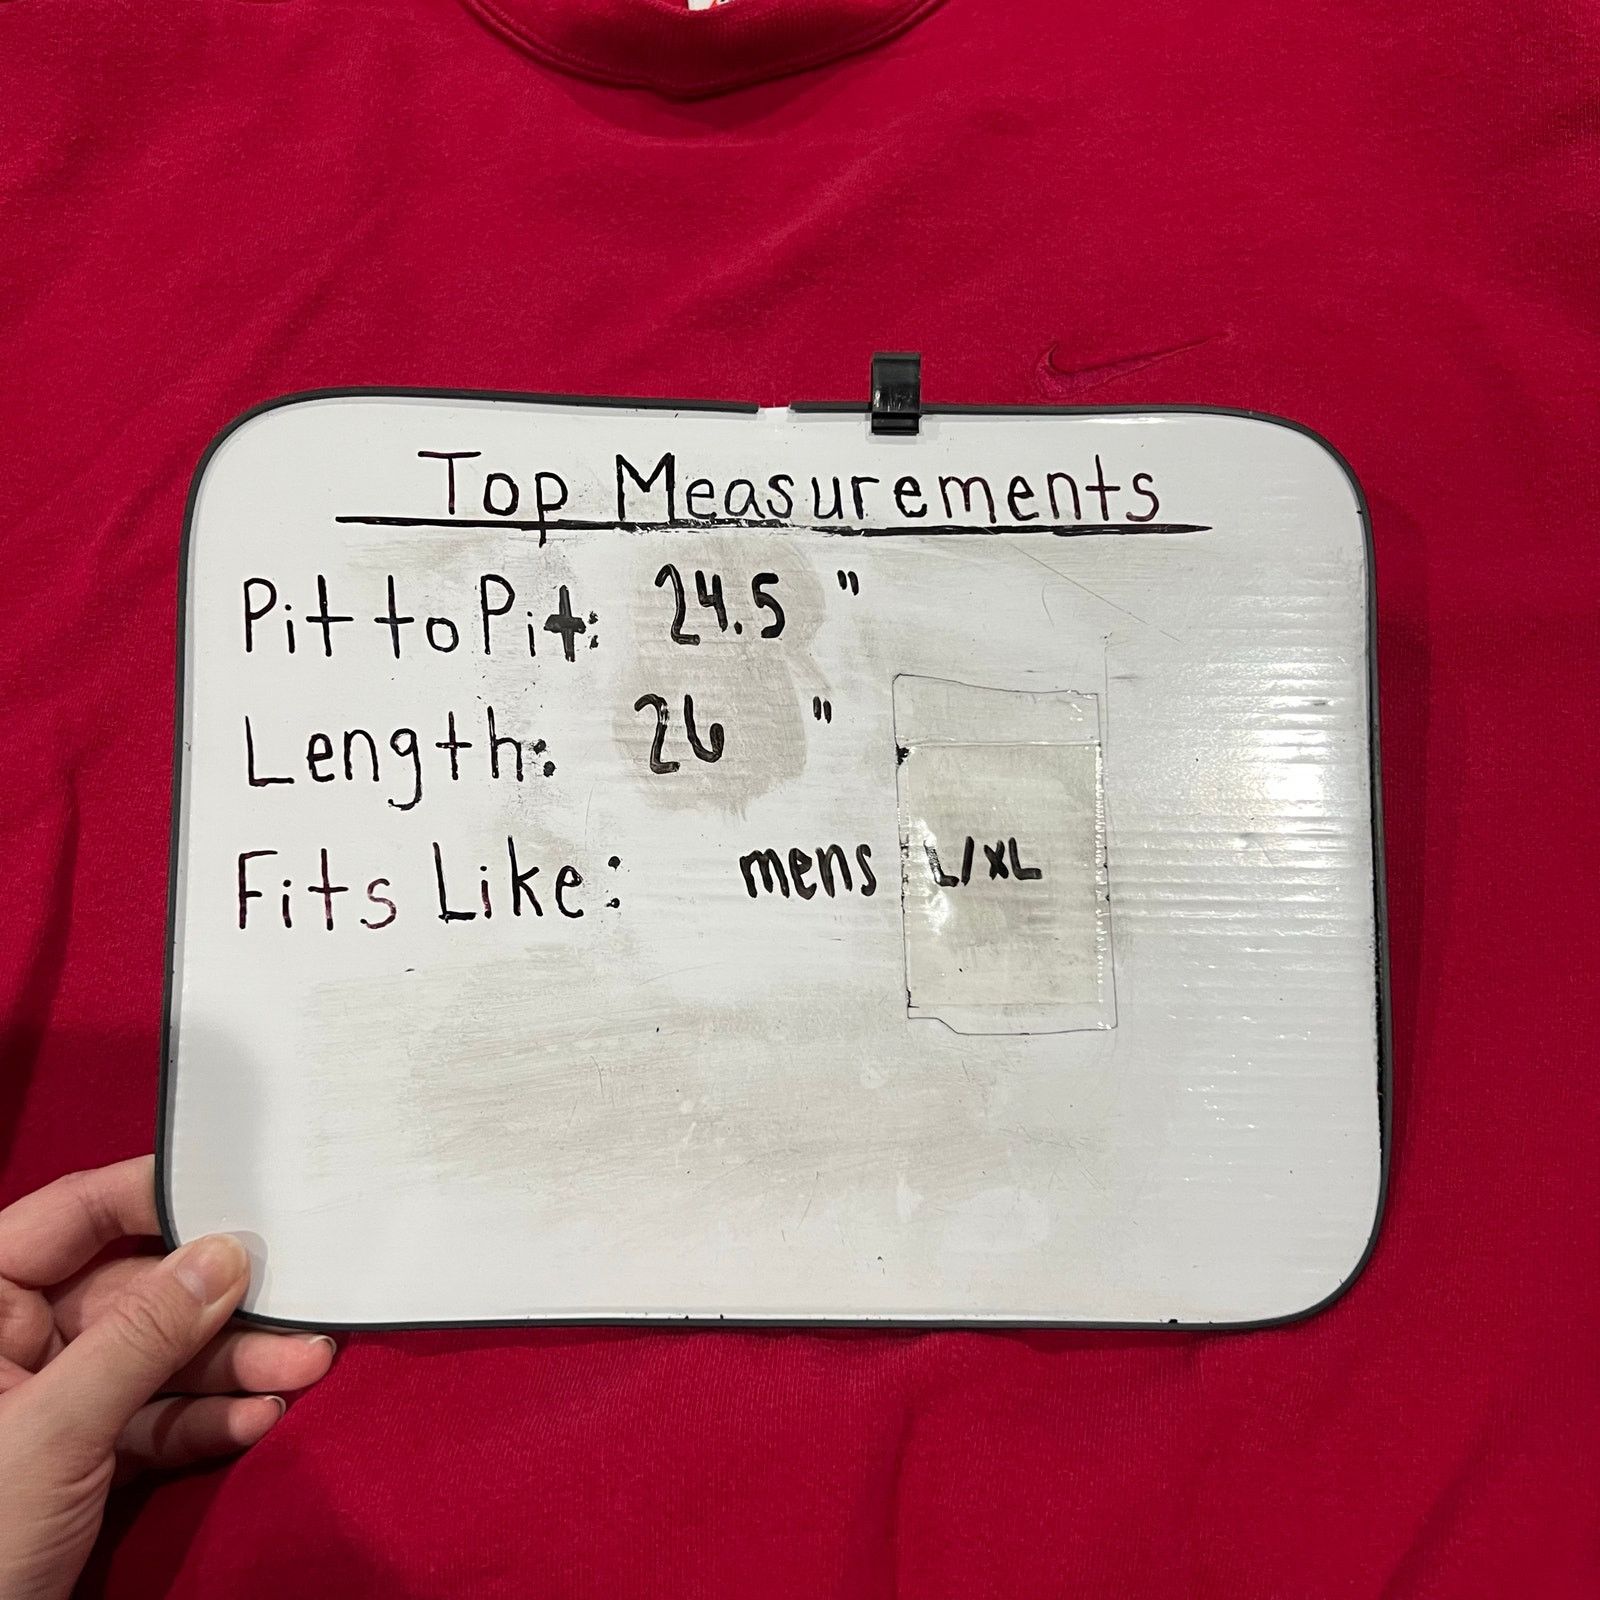 Top Measurements
Pit to Pit: 24.5 "
Length: 26 "
Fits Like: mens L/XL